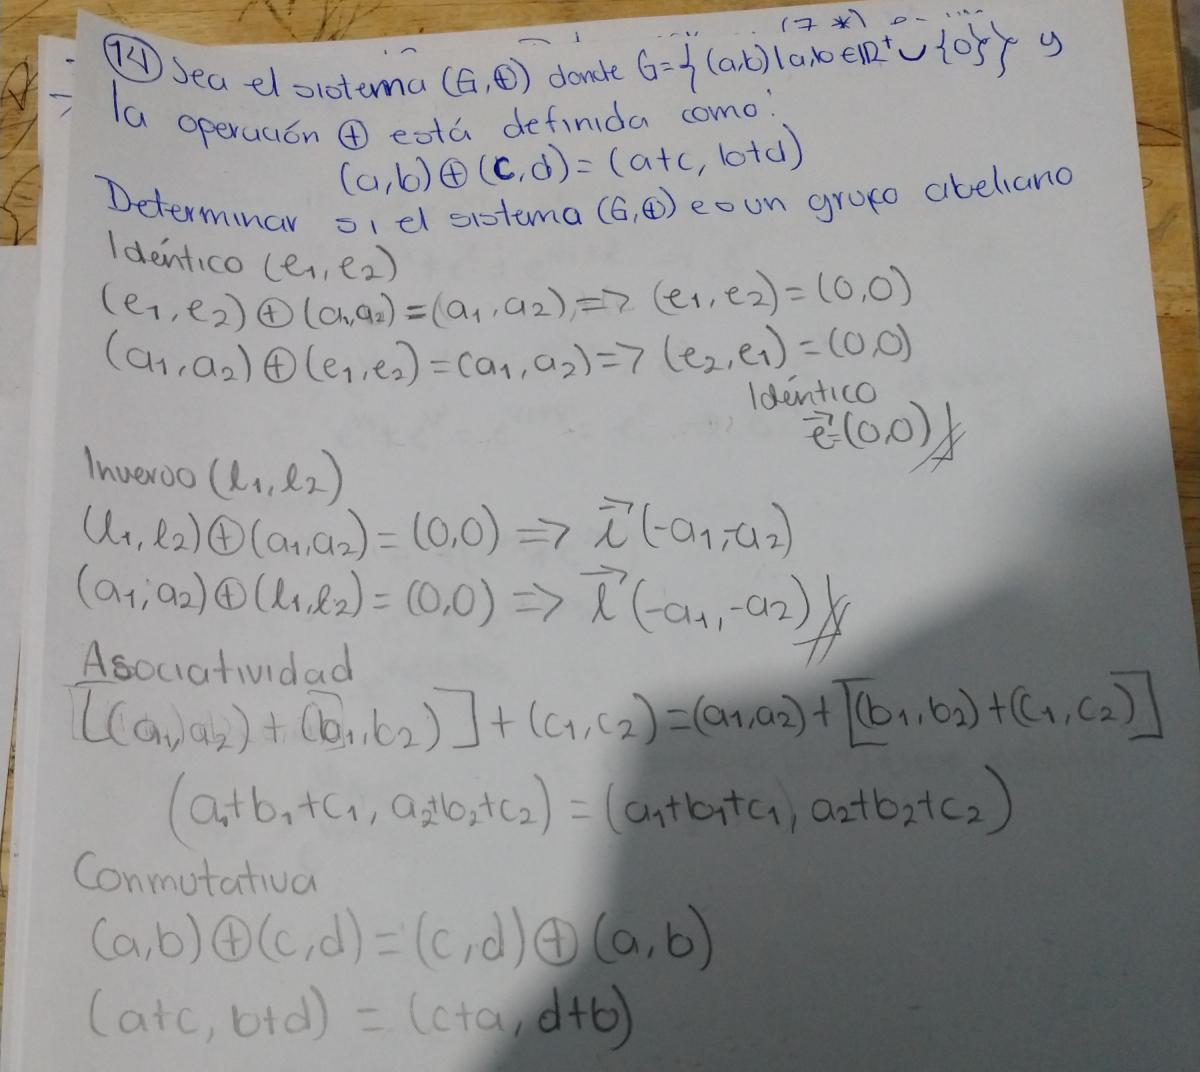 14 Sea el sistema (G,⊕) donde G={(a,b)|a,b∈ℝ⁺∪{0}} y
la operación ⊕ está definida como:
(a,b)⊕(c,d)=(a+c, b+d)
Determinar si el sistema (G,⊕) es un grupo abeliano
Idéntico (e₁,e₂)
(e₁,e₂)⊕(a₁,a₂)=(a₁,a₂)=>(e₁,e₂)=(0,0)
(a₁,a₂)⊕(e₁,e₂)=(a₁,a₂)=>(e₂,e₁)=(0,0)
Idéntico
e⃗=(0,0)
Inverso (i₁,i₂)
(i₁,i₂)⊕(a₁,a₂)=(0,0)=>i⃗(-a₁,-a₂)
(a₁,a₂)⊕(i₁,i₂)=(0,0)=>i⃗(-a₁,-a₂)
Asociatividad
[(a₁,a₂)+(b₁,b₂)]+(c₁,c₂)=(a₁,a₂)+[(b₁,b₂)+(c₁,c₂)]
(a₁+b₁+c₁, a₂+b₂+c₂)=(a₁+b₁+c₁, a₂+b₂+c₂)
Conmutativa
(a,b)⊕(c,d)=(c,d)⊕(a,b)
(a+c, b+d)=(c+a, d+b)